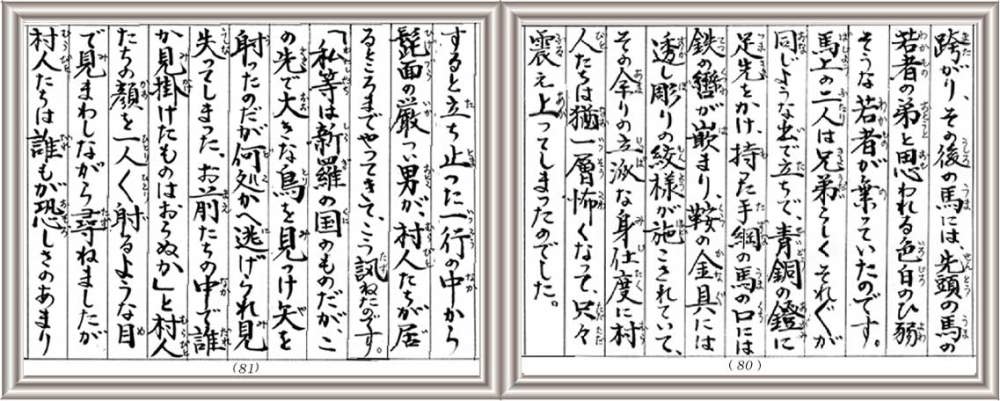 跨がり、その後の馬には、先頭の馬の
若者の弟と思われる色白のひ弱
そうな若者が乗っていたのです。
馬上の二人は兄弟らしくそれ〲が
同じような出で立ちで、青銅の鐙に
足先をかけ、持った手綱の馬の口には
鉄の轡が嵌まり、鞍の金具には
透し彫りの紋様が施こされていて、
その余りの立派な身仕度に村
人たちは猶一層怖くなって、只々
震え上ってしまったのでした。
(80)
すると立ち止った一行の中から
髭面の厳つい男が、村人たちが居
るところまでやってきて、こう訊ねたのです。
「私等は新羅の国のものだが、こ
の先で大きな鳥を見つけ矢を
射ったのだが何処かへ逃げられ見
失ってしまった、お前たちの中で誰
か見掛けたものはおらぬか」と村人
たちの顔を一人〱射るような目
で見まわしながら尋ねましたが
村人たちは誰もが恐しさのあまり
(81)